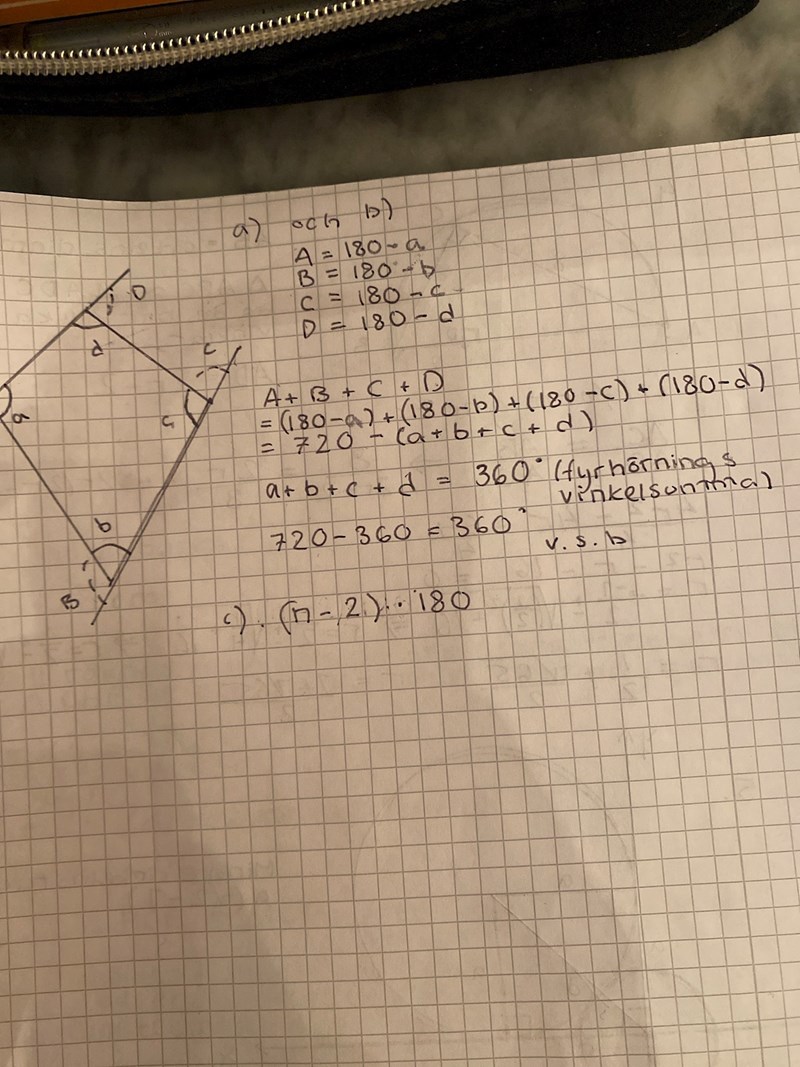 a) och b)
A = 180-a
B = 180-b
C = 180-c
D = 180-d
A+B+C+D
= (180-a)+(180-b)+(180-c)+(180-d)
= 720-(a+b+c+d)
a+b+c+d = 360° (fyrhörnings
vinkelsumma)
720-360 = 360°
v.s.b
c). (n-2)·180
D
d
C
a
c
b
B